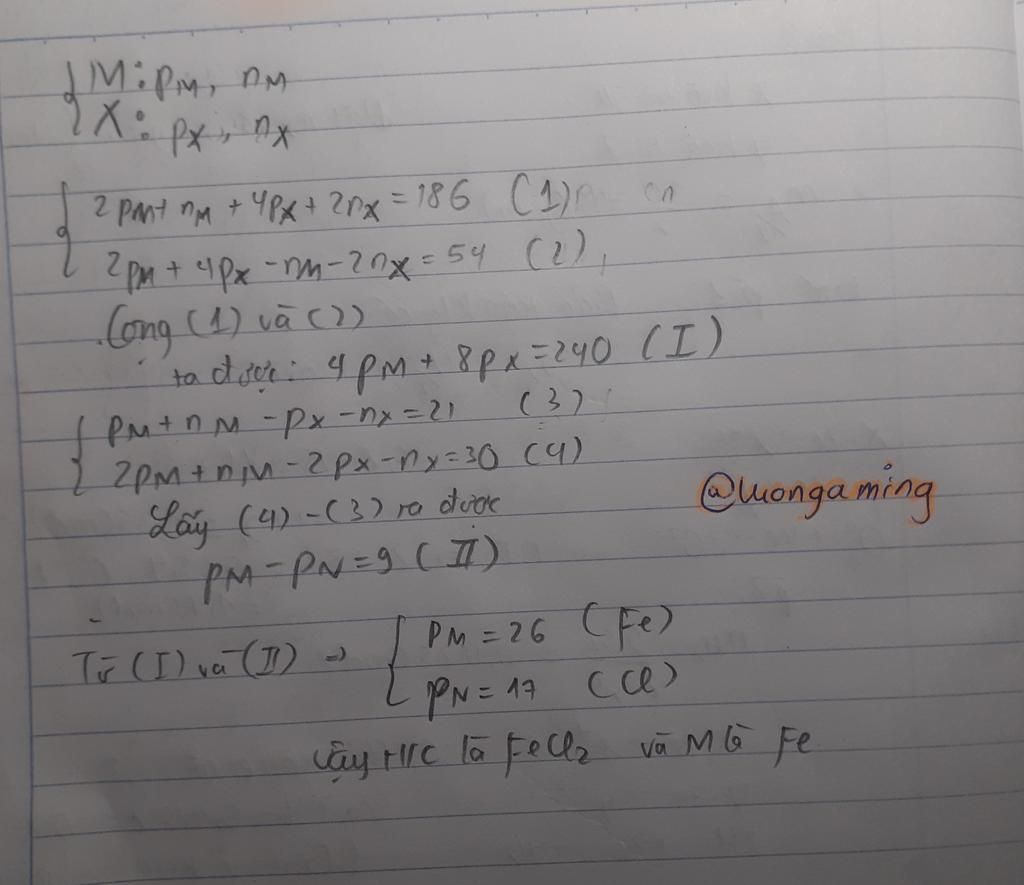 M: pM, nM
X: pX, nX
2pM + nM + 4pX + 2nX = 186 (1)
2pM + 4pX - nM - 2nX = 54 (2)
Cộng (1) và (2)
ta được: 4pM + 8pX = 240 (I)
pM + nM - pX - nX = 21 (3)
2pM + nM - 2pX - nX = 30 (4)
Lấy (4) - (3) ta được
@luongaming
pM - pN = 9 (II)
Từ (I) và (II) => pM = 26 (Fe)
pN = 17 (Cl)
Vậy HC là FeCl2 và M là Fe